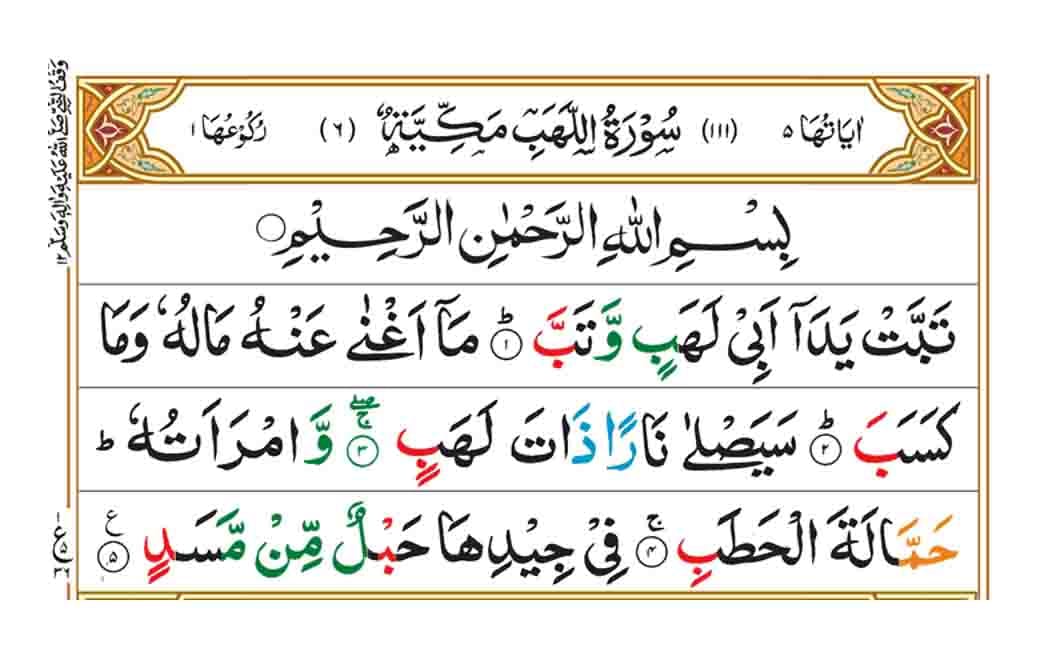 اٰيَاتُهَا ٥ (١١١) سُوْرَةُ اللَّهَبِ مَكِّيَّةٌ (٦) رُكُوْعُهَا ١
بِسْمِ اللّٰهِ الرَّحْمٰنِ الرَّحِيْمِ ○
تَبَّتْ يَدَاۤ اَبِيْ لَهَبٍ وَّتَبَّ ؕ﴿١﴾ مَاۤ اَغْنٰى عَنْهُ مَالُهٗ وَمَا
كَسَبَ ؕ﴿٢﴾ سَيَصْلٰى نَارًا ذَاتَ لَهَبٍ ۖۚ﴿٣﴾ وَّامْرَاَتُهٗ ؕ
حَمَّالَةَ الْحَطَبِ ۚ﴿٤﴾ فِيْ جِيْدِهَا حَبْلٌ مِّنْ مَّسَدٍ ﴿٥﴾ ع
وَقَفُ النَّبِيِّ صَلَّى اللّٰهُ عَلَيْهِ وَاٰلِهٖ وَسَلَّمَ ١٢